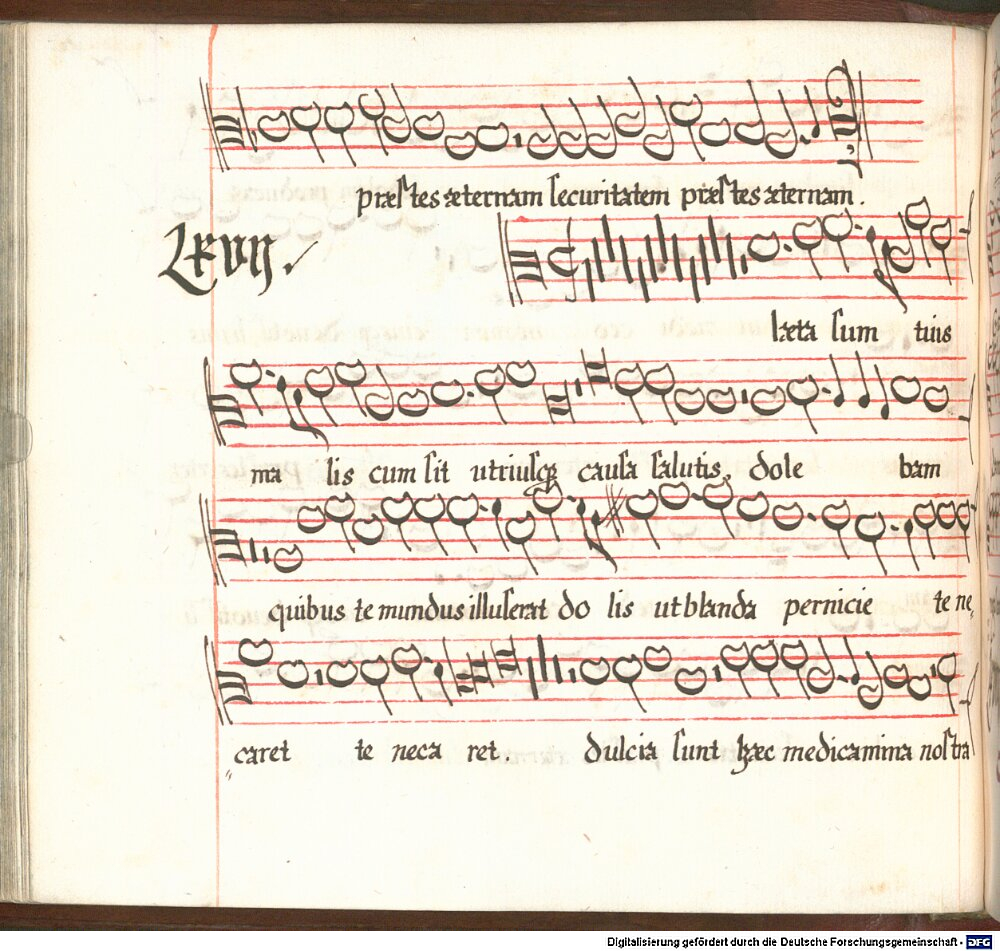 præstes æternam securitatem præstes æternam.
Lxvij.
læta sum tuis
ma lis cum sit utriusque causa salutis, dole bam
quibus te mundus illuserat do lis ut blanda pernicie te ne,
caret te neca ret dulcia sunt hæc medicamina nostra
Digitalisierung gefördert durch die Deutsche Forschungsgemeinschaft - DFG